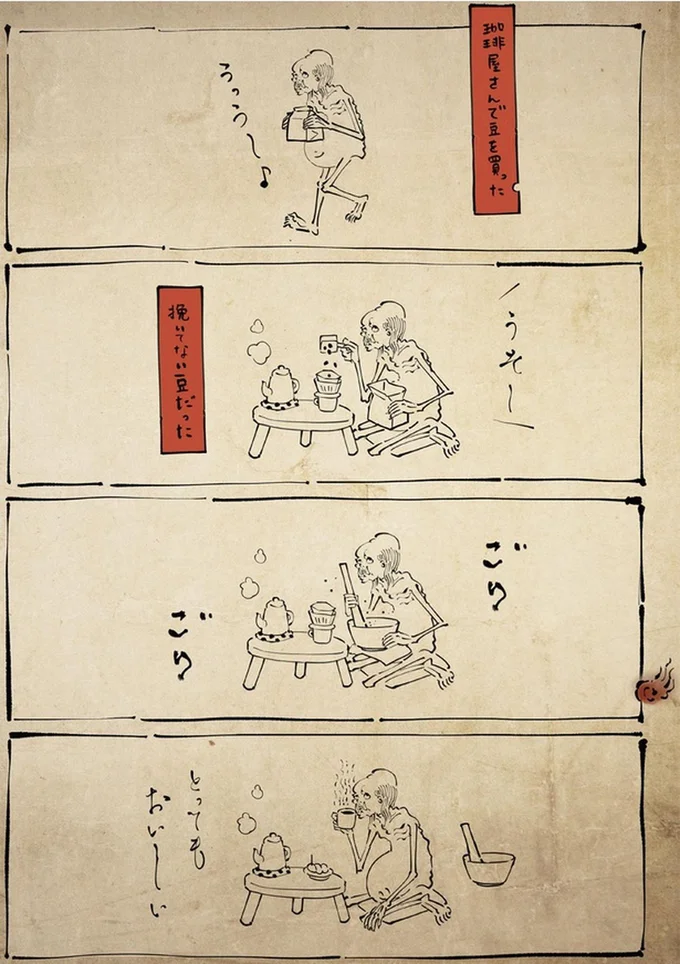 珈琲屋さんで豆を買った
うっうし〜♪
うそ〜
挽いてない豆だった
ごり
ごり
とっても
おいしい